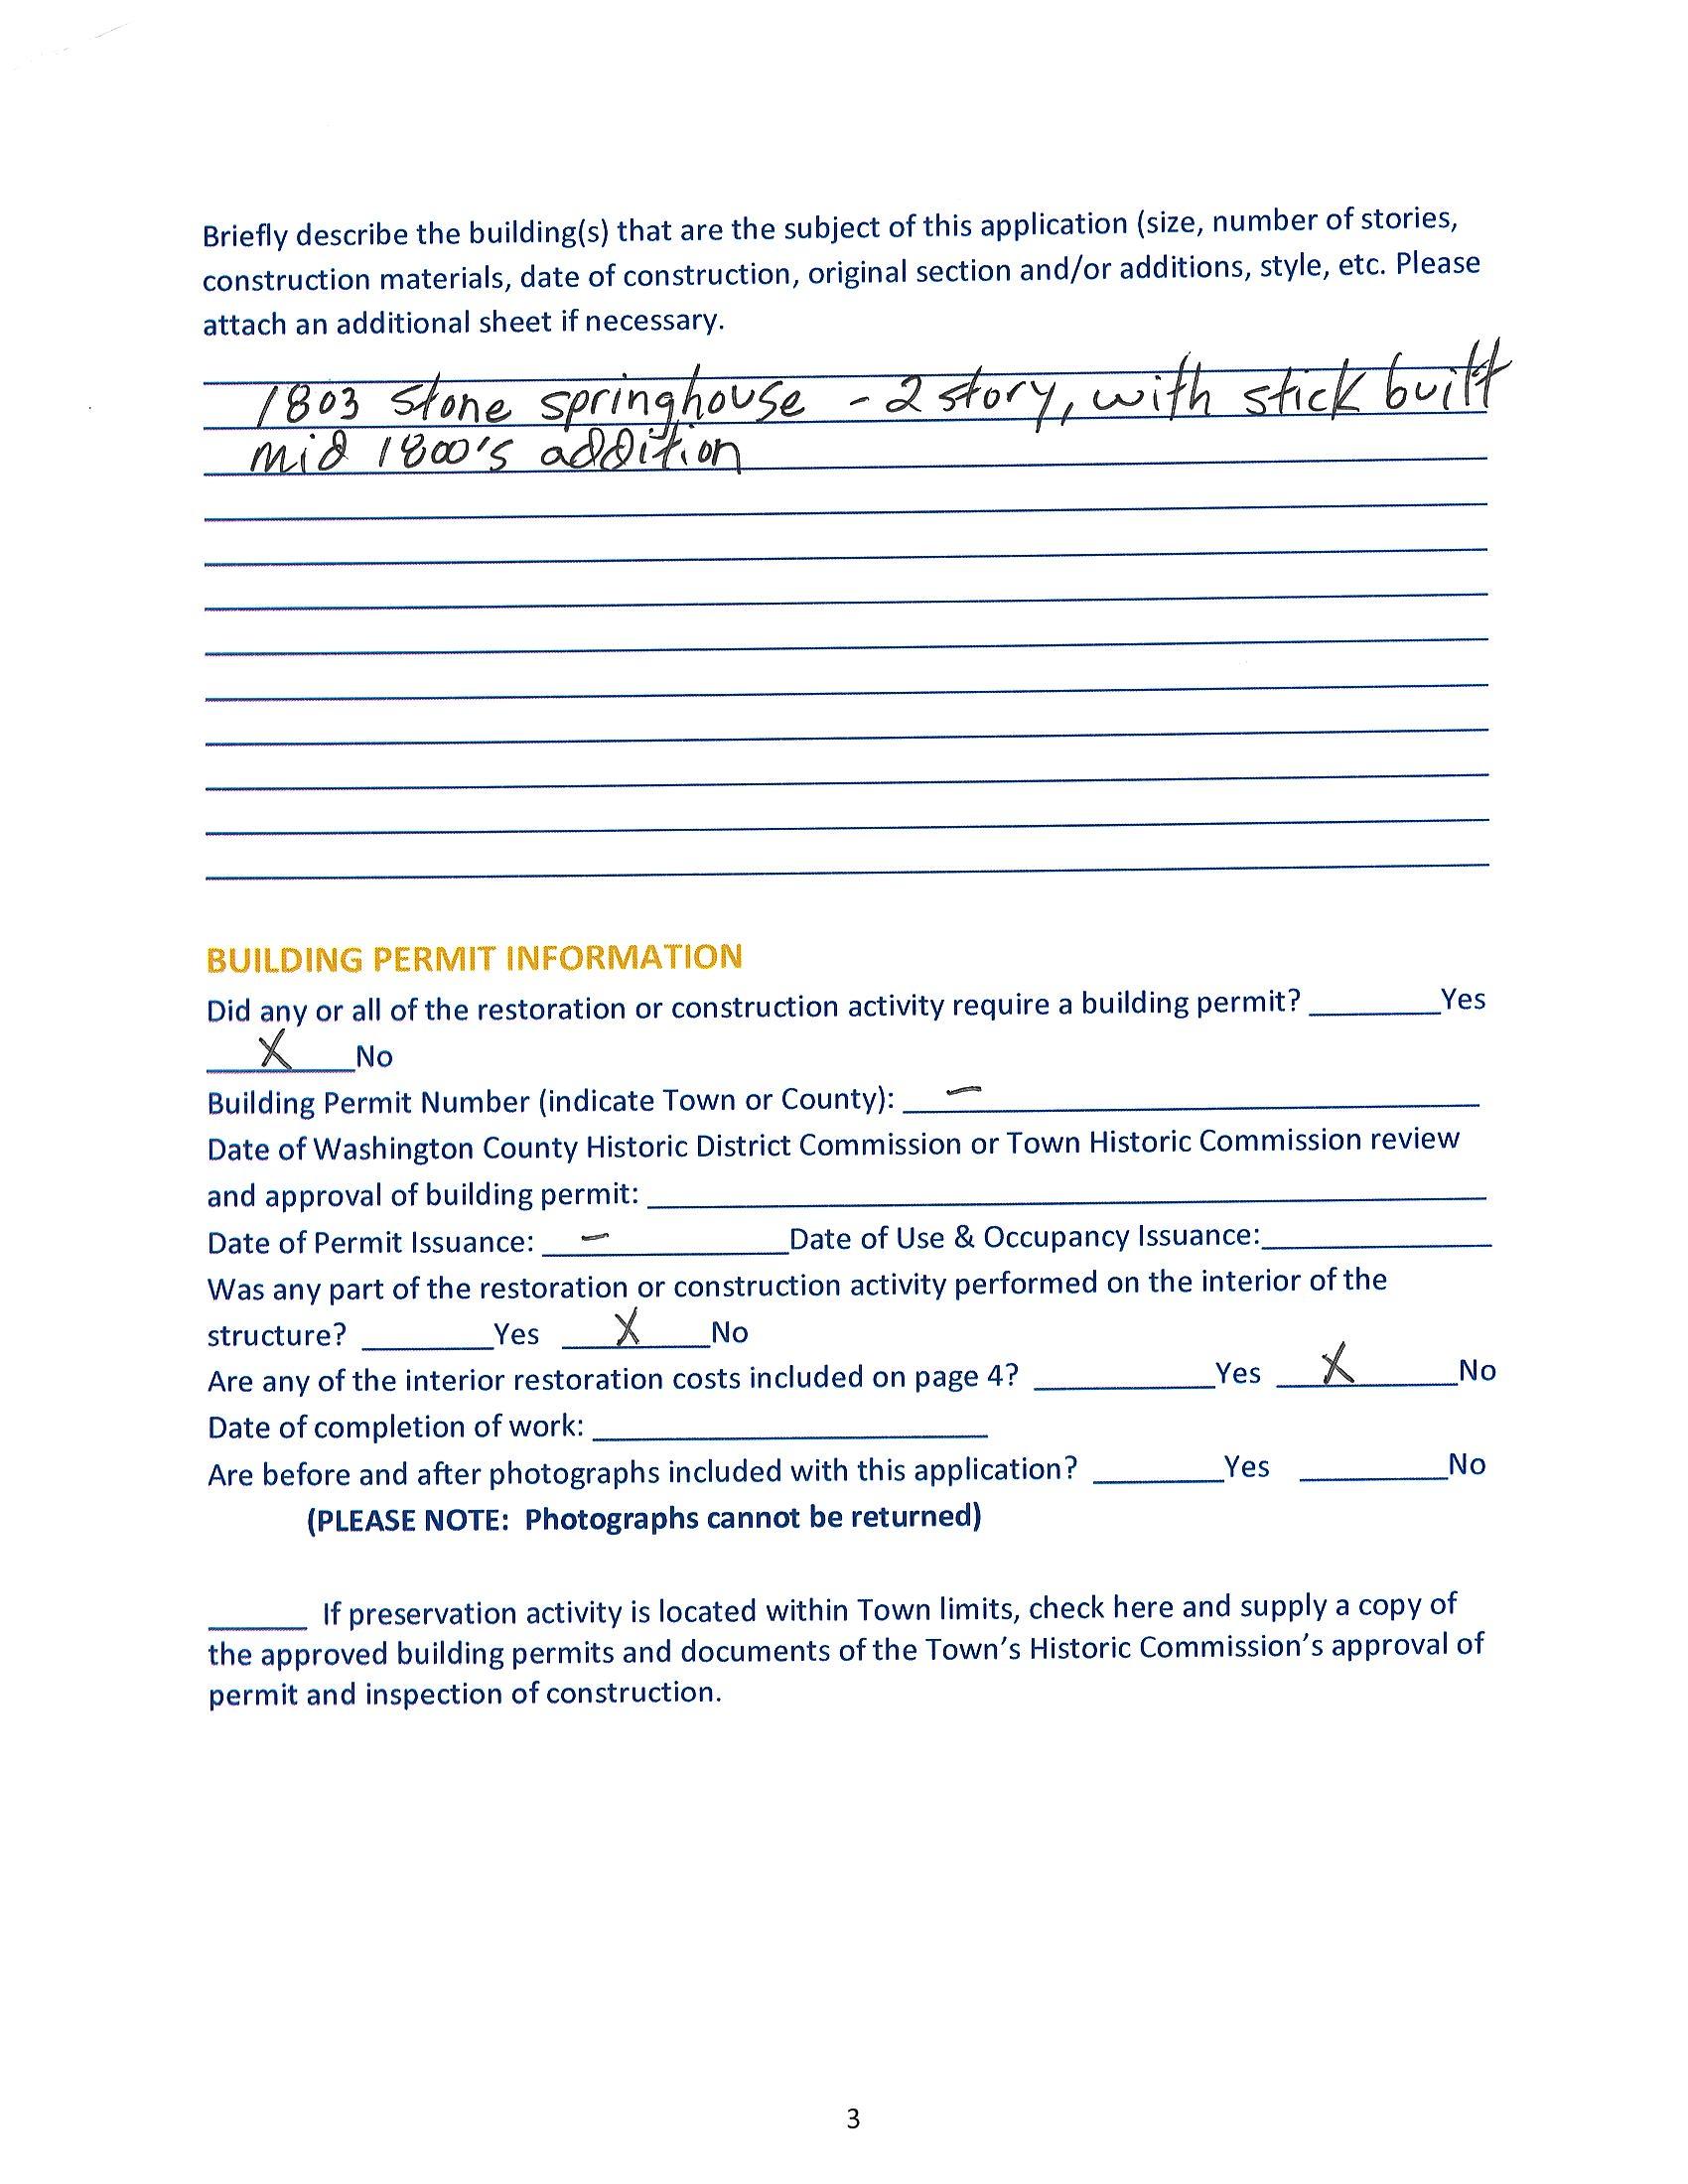 Briefly describe the building(s) that are the subject of this application (size, number of stories,
construction materials, date of construction, original section and/or additions, style, etc. Please
attach an additional sheet if necessary.
1803 stone springhouse - 2 story, with stick built
mid 1800's addition
BUILDING PERMIT INFORMATION
Did any or all of the restoration or construction activity require a building permit? ________Yes
___X___No
Building Permit Number (indicate Town or County): __–__________
Date of Washington County Historic District Commission or Town Historic Commission review
and approval of building permit: ____________
Date of Permit Issuance: __–______Date of Use & Occupancy Issuance:____________
Was any part of the restoration or construction activity performed on the interior of the
structure? ________Yes ___X___No
Are any of the interior restoration costs included on page 4? __________Yes ___X____No
Date of completion of work: ____________
Are before and after photographs included with this application? ________Yes ________No
(PLEASE NOTE: Photographs cannot be returned)
______ If preservation activity is located within Town limits, check here and supply a copy of
the approved building permits and documents of the Town's Historic Commission's approval of
permit and inspection of construction.
3